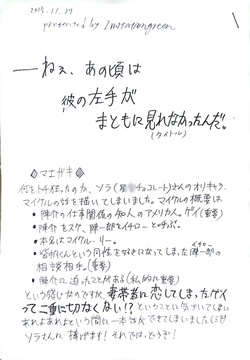 2015.11.29
presented by Imitationgreen
──ねぇ、あの頃は
彼の左手が
まともに見れなかったんだ。
(タイトル)
◎マエガキ◎
何をトチ狂ったのか、ソラ(星 チョコレート)さんのオリキャラ、
マイケルの話を描いてしまいました。マイケルの概要は
・陣介の仕事関係の知人のアメリカ人。ゲイ(重要)
・陣介をスケ、陣一郎をイチローと呼ぶ。
・本名はマイケル・リー。
・ という同性を好きになってしまった陣一郎の
イチロー
相談相手。(重要)
・陣介に迫ったことがある(私的に重要)
という感じなのですが、妻帯者に恋してしまったゲイ
って二重に切なくない!?ということに気がついてしまい
あれよあれよという間に一本 ができてしまいました(こわ
ソラさんに 捧げます! それでは、どうぞ!